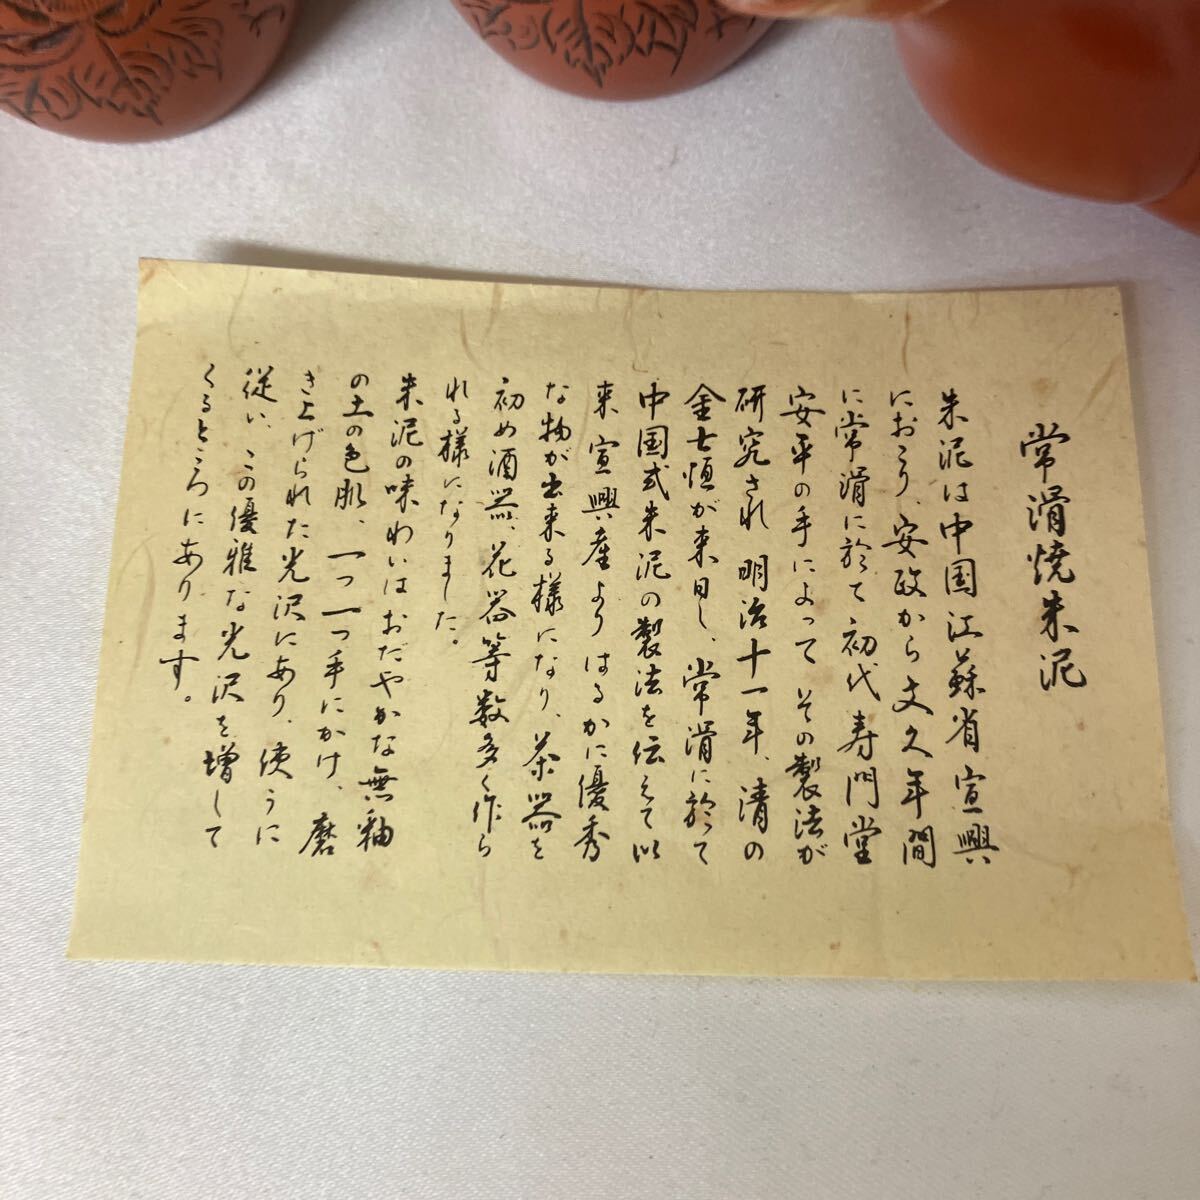 常滑焼朱泥
朱泥は中国江蘇省宣興
におこり、安政から文久年間
に常滑に於て初代寿門堂
安平の手によってその製法が
研究され明治十一年、清の
金士恒が来日し、常滑に於って
中国式朱泥の製法を伝えて以
来宣興産よりはるかに優秀
な物が出来る様になり、茶器を
初め酒器、花器等数多く作ら
れる様になりました。
朱泥の味わいはおだやかな無釉
の土の色肌、一つ一つ手にかけ、磨
き上げられた光沢にあり、使うに
従い、この優雅な光沢を増して
くるところにあります。